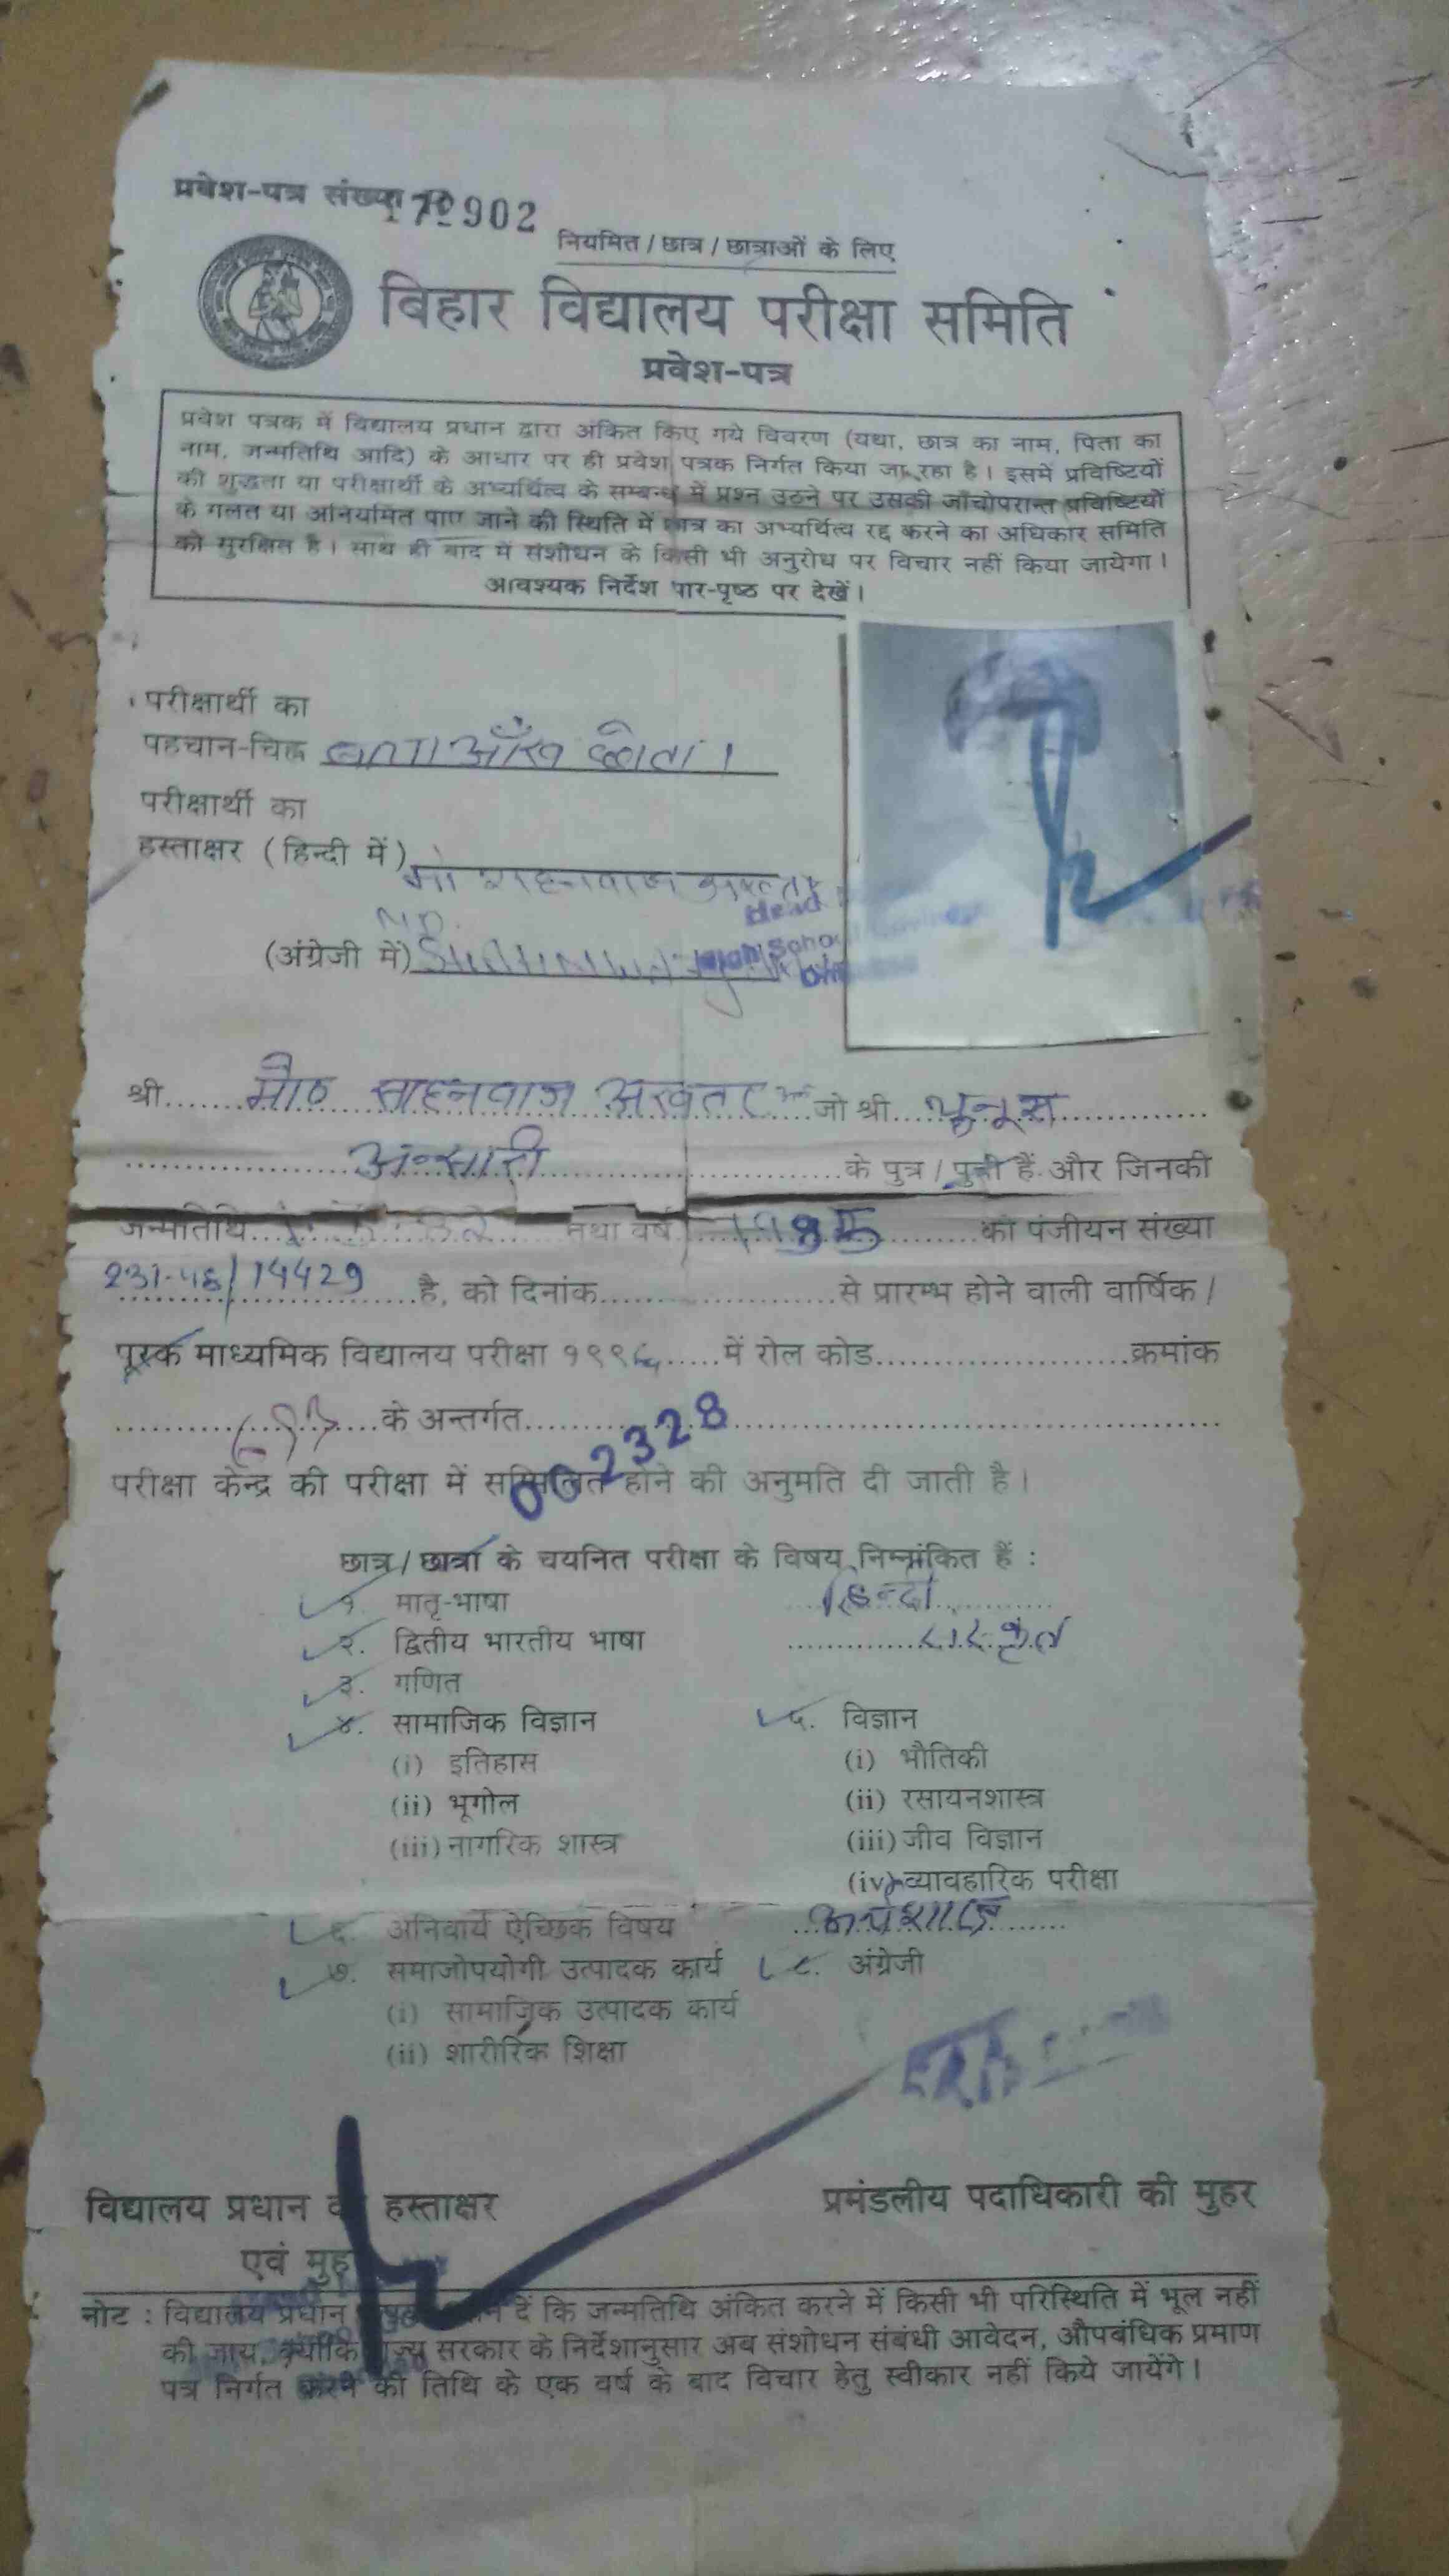 प्रवेश-पत्र संख्या
902
नियमित / छात्र / छात्राओं के लिए
बिहार विद्यालय परीक्षा समिति
प्रवेश-पत्र
प्रवेश पत्रक में विद्यालय प्रधान द्वारा अंकित किए गये विवरण (यथा, छात्र का नाम, पिता का
नाम, जन्मतिथि आदि) के आधार पर ही प्रवेश पत्रक निर्गत किया जा रहा है। इसमें प्रविष्टियों
की शुद्धता या परीक्षार्थी के अभ्यर्थित्व के सम्बन्ध में प्रश्न उठने पर उसकी जाँचोपरान्त प्रविष्टियों
के गलत या अनियमित पाए जाने की स्थिति में छात्र का अभ्यर्थित्व रद्द करने का अधिकार समिति
को सुरक्षित है। साथ ही बाद में संशोधन के किसी भी अनुरोध पर विचार नहीं किया जायेगा।
आवश्यक निर्देश पार-पृष्ठ पर देखें।
परीक्षार्थी का
पहचान-चिह्न
परीक्षार्थी का
हस्ताक्षर (हिन्दी में) मो
(अंग्रेजी में)
श्री मो० साहनवाज अखतर जो श्री युनूस
अन्सारी के पुत्र / पुत्री हैं और जिनकी
जन्मतिथि तथा वर्ष को पंजीयन संख्या
14429 है, को दिनांक से प्रारम्भ होने वाली वार्षिक /
पूरक माध्यमिक विद्यालय परीक्षा में रोल कोड क्रमांक
के अन्तर्गत
002328
परीक्षा केन्द्र की परीक्षा में सम्मिलित होने की अनुमति दी जाती है।
छात्र / छात्रा के चयनित परीक्षा के विषय निम्नांकित हैं :
१. मातृ-भाषा हिन्दी
२. द्वितीय भारतीय भाषा संस्कृत
३. गणित
४. सामाजिक विज्ञान
(i) इतिहास
(ii) भूगोल
(iii) नागरिक शास्त्र
५. विज्ञान
(i) भौतिकी
(ii) रसायनशास्त्र
(iii) जीव विज्ञान
(iv) व्यावहारिक परीक्षा
६. अनिवार्य ऐच्छिक विषय अर्थशास्त्र
७. समाजोपयोगी उत्पादक कार्य
(i) सामाजिक उत्पादक कार्य
(ii) शारीरिक शिक्षा
८. अंग्रेजी
विद्यालय प्रधान हस्ताक्षर
एवं
प्रमंडलीय पदाधिकारी की मुहर
नोट : विद्यालय प्रधान दें कि जन्मतिथि अंकित करने में किसी भी परिस्थिति में भूल नहीं
की जाय, क्योंकि राज्य सरकार के निर्देशानुसार अब संशोधन संबंधी आवेदन, औपबंधिक प्रमाण
पत्र निर्गत करने की तिथि के एक वर्ष के बाद विचार हेतु स्वीकार नहीं किये जायेंगे।